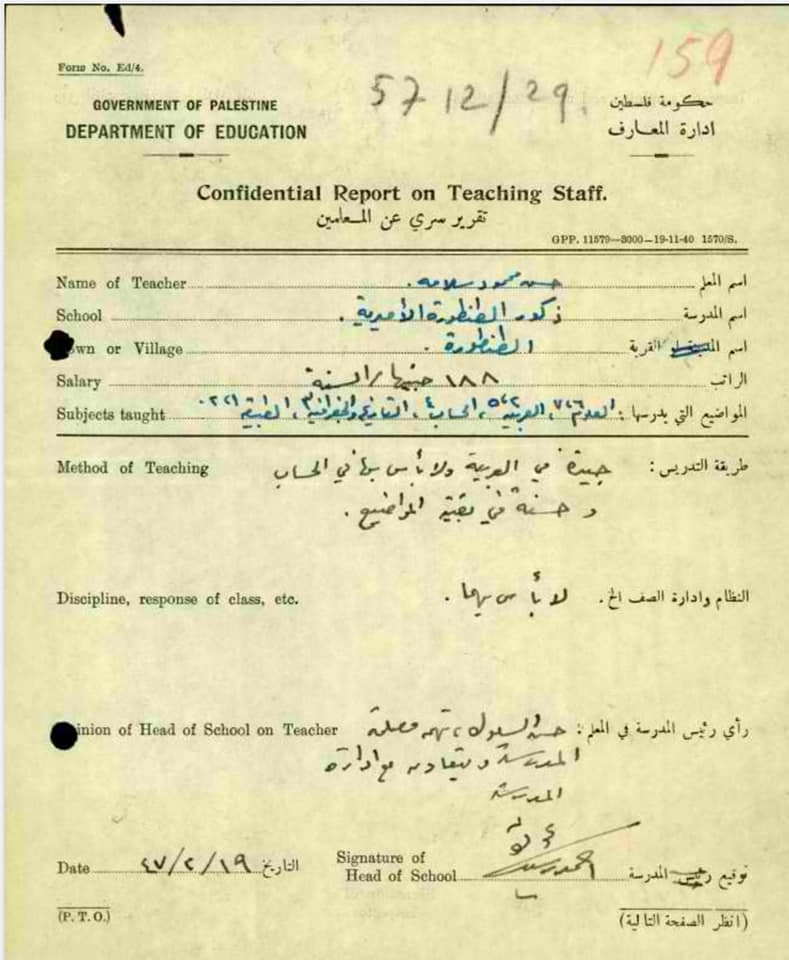 Form No. Ed/4.
159
57 12/29.
GOVERNMENT OF PALESTINE
حكومة فلسطين
DEPARTMENT OF EDUCATION
ادارة المعارف
Confidential Report on Teaching Staff.
تقرير سري عن المعلمين
GPP. 11579—3000—19-11-40 1570/S.
Name of Teacher حسن محمود سلامه. اسم المعلم
School ذكور الطنطورة الأميرية. اسم المدرسة
own or Village الطنطورة. القرية اسم
Salary ١٨٨ جنيها/السنة الراتب
Subjects taught العلوم ٧٦، العربية، الحساب ٤، التاريخ والجغرافية ٣، المواضيع التي يدرسها:
Method of Teaching جيدة في العربية ولا بأس بها في الحساب طريقة التدريس:
و حسنة في بقية المواضيع.
Discipline, response of class, etc. لا بأس بهما. النظام وادارة الصف الخ.
inion of Head of School on Teacher حسن السلوك، تهمه مصلحة رأي رئيس المدرسة في المعلم:
المدرسة ويتعاون مع ادارة
المدرسة
Date ٤٧/٢/١٩ التاريخ
Signature of
Head of School توقيع رئيس المدرسة
(P. T. O.)
(انظر الصفحة التالية)